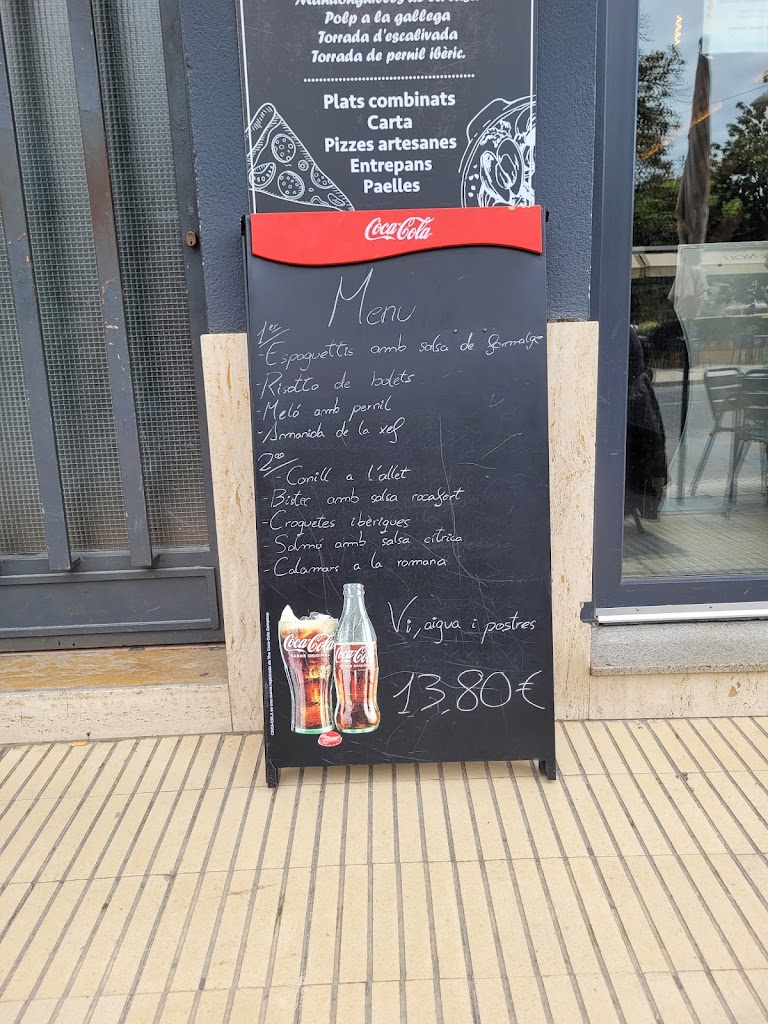 Polp a la gallega
Torrada d'escalivada
Torrada de pernil ibèric.
Plats combinats
Carta
Pizzes artesanes
Entrepans
Paelles
Coca-Cola
Menu
1er
-Espaguettis amb salsa de formatge
-Risotto de bolets
-Meló amb pernil
-Amanida de la xef
2on
-Conill a l'allet
-Bistec amb salsa rocafort
-Croquetes ibèriques
-Salmó amb salsa cítrica
-Calamars a la romana
Vi, aigua i postres
13,80€
Coca-Cola
SABOR ORIGINAL
Coca-Cola